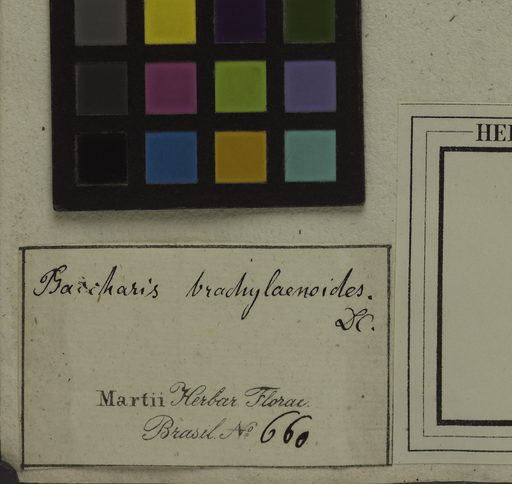 HE
Baccharis brachylaenoides.
DC.
Martii Herbar. Florae
Brasil. No 660